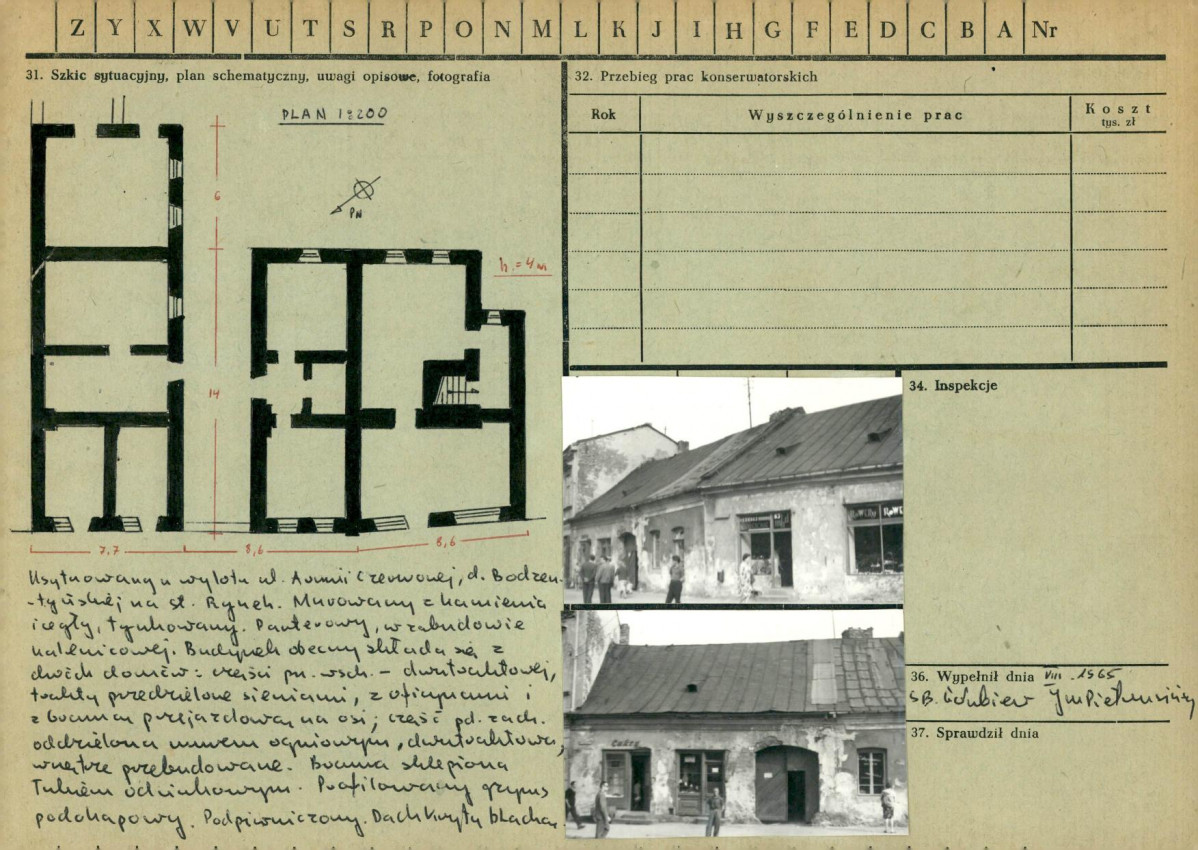 Z Y X W V U T S R P O N M L K J I H G F E D C B A Nr
31. Szkic sytuacyjny, plan schematyczny, uwagi opisowe, fotografia
PLAN 1:200
PN
h.=4m
6
14
7,7
8,6
8,6
Usytuowany u wylotu ul. Armii Czerwonej, d. Bodzen-
-tyńskiej na st. Rynek. Murowany z kamienia
i cegły, tynkowany. Parterowy, w zabudowie
kalenicowej. Budynek obecny składa się z
dwóch domów: części pn. wsch. - dwutraktowej,
trakty przedzielone sieniami, z oficynami i
z bramą przejazdową na osi; część pd. zach.
oddzielona murem ogniowym, dwutraktowa,
wnętrze przebudowane. Brama sklepiona
Tukiem odcinkowym. Profilowany gzyms
podokapowy. Podpiwniczony. Dach kryty blachą.
32. Przebieg prac konserwatorskich
Rok
Wyszczególnienie prac
Koszt
tys. zł
Cukry
34. Inspekcje
36. Wypełnił dnia VIII. 1965
37. Sprawdził dnia